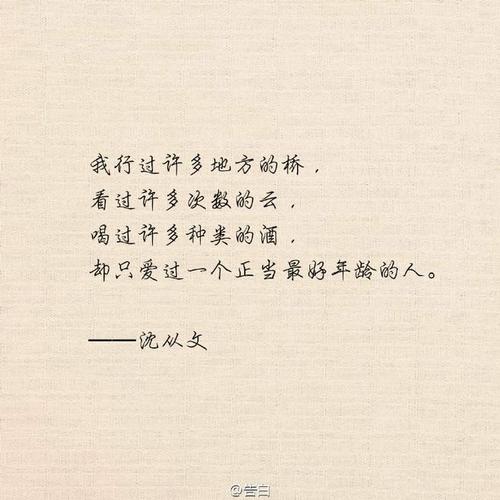 我行过许多地方的桥，
看过许多次数的云，
喝过许多种类的酒，
却只爱过一个正当最好年龄的人。
——沈从文
@告白